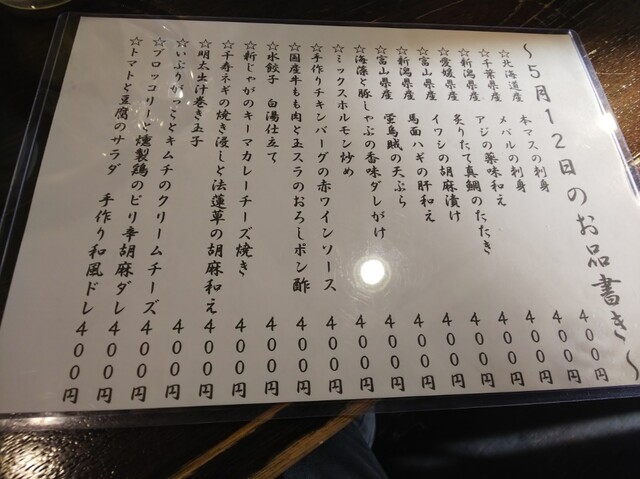 〜5月12日のお品書き〜
☆北海道産 本マスの刺身 400円
☆千葉県産 メバルの刺身 400円
☆新潟県産 アジの薬味和え 400円
☆愛媛県産 炙りたて真鯛のたたき 400円
☆富山県産 イワシの胡麻漬け 400円
☆新潟県産 馬面ハギの肝和え 400円
☆富山県産 蛍烏賊の天ぷら 400円
☆海藻と豚しゃぶの香味ダレがけ 400円
☆ミックスホルモン炒め 400円
☆手作りチキンバーグの赤ワインソース 400円
☆国産牛もも肉と玉スラのおろしポン酢 400円
☆水餃子 白湯仕立て 400円
☆新じゃがのキーマカレーチーズ焼き 400円
☆千寿ネギの焼き浸しと法蓮草の胡麻和え 400円
☆明太出汁巻き玉子 400円
☆いぶりがっことキムチのクリームチーズ 400円
☆ブロッコリーと燻製鶏のピリ辛胡麻ダレ 400円
☆トマトと豆腐のサラダ 手作り和風ドレ 400円